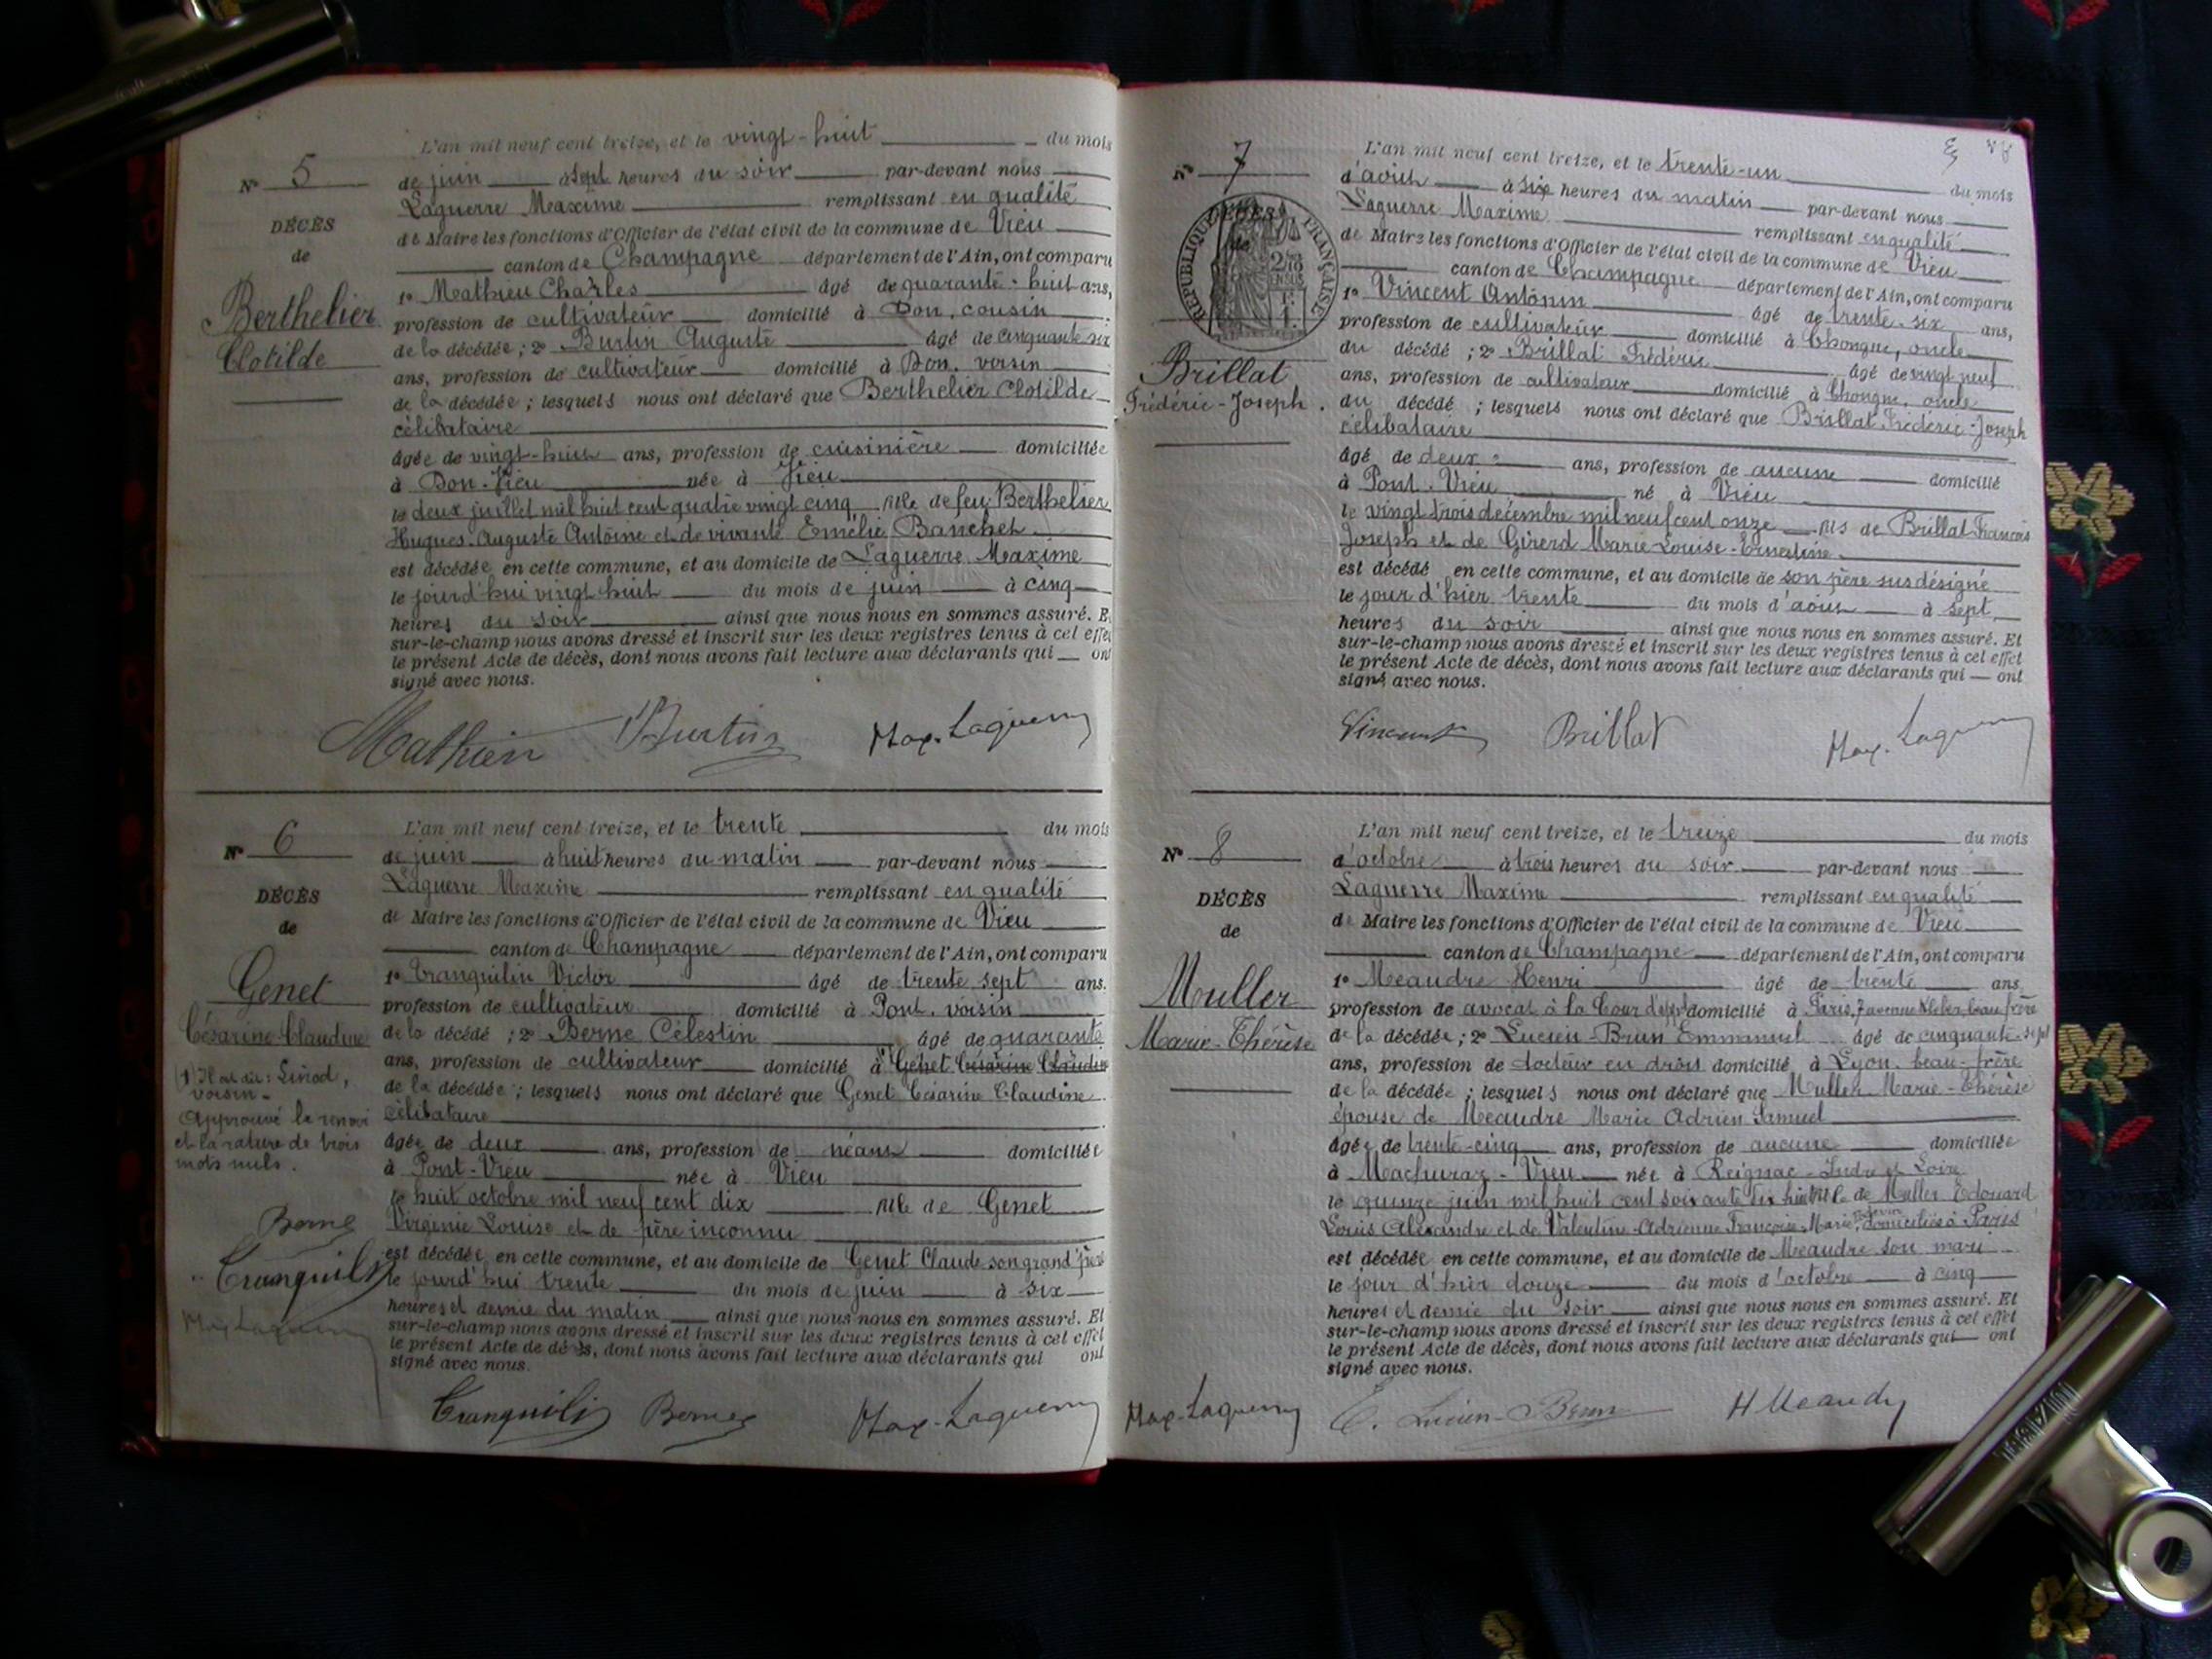 L'an mil neuf cent treize, et le vingt-huit du mois
N° 5
de juin à sept heures du soir par-devant nous
Laguerre Maxime remplissant en qualité
DÉCÈS
de Maire les fonctions d'Officier de l'état civil de la commune de Vieu
de
canton de Champagne département de l'Ain, ont comparu
Berthelier
Clotilde
1° Mathieu Charles âgé de quarante-huit ans,
profession de cultivateur domicilié à Don, cousin
de la décédée ; 2° Burtin Auguste âgé de cinquante six
ans, profession de cultivateur domicilié à Don, voisin
de la décédée ; lesquels nous ont déclaré que Berthelier Clotilde
célibataire
âgée de vingt-huit ans, profession de cuisinière domiciliée
à Don-Vieu née à Vieu
le deux juillet mil huit cent quatre vingt cinq fille de feu Berthelier
Hugues-Auguste Antoine et de vivante Emélie Banchet
est décédée en cette commune, et au domicile de Laguerre Maxime
le jourd'hui vingt huit du mois de juin à cinq
heures du soir ainsi que nous nous en sommes assuré. E
sur-le-champ nous avons dressé et inscrit sur les deux registres tenus à cet effe
le présent Acte de décès, dont nous avons fait lecture aux déclarants qui ont
signé avec nous.
Mathieu Burtin Max. Laguerre
L'an mil neuf cent treize, et le trente du mois
N° 6
de juin à huit heures du matin par-devant nous
Laguerre Maxime remplissant en qualité
DÉCÈS
de Maire les fonctions d'Officier de l'état civil de la commune de Vieu
de
canton de Champagne département de l'Ain, ont comparu
Genet
Césarine-Claudine
1° Tranquilin Victor âgé de trente sept ans.
profession de cultivateur domicilié à Pont, voisin
de la décédé ; 2° Berne Célestin âgé de quarante
ans, profession de cultivateur domicilié à Genet Césarine Claudine
de la décédée ; lesquels nous ont déclaré que Genet Césarine Claudine
célibataire
âgée de deux ans, profession de néant domiciliée
à Pont-Vieu née à Vieu
le huit octobre mil neuf cent dix fille de Genet
Virginie Louise et de père inconnu
est décédée en cette commune, et au domicile de Genet Claude son grand'père
le jourd'hui trente du mois de juin à six
heures et demie du matin ainsi que nous nous en sommes assuré. Et
sur-le-champ nous avons dressé et inscrit sur les deux registres tenus à cet effet
le présent Acte de décès, dont nous avons fait lecture aux déclarants qui ont
signé avec nous.
voisin.
Approuvé le renvoi
et la rature de trois
mots nuls.
Berne
Tranquilin
Max Laguerre
Tranquilin Berne Max. Laguerre
L'an mil neuf cent treize, et le trente-un du mois
N° 7
d'août à six heures du matin par-devant nous
Laguerre Maxime remplissant en qualité
DÉCÈS
de
RÉPUBLIQUE FRANÇAISE
de Maire les fonctions d'Officier de l'état civil de la commune de Vieu
canton de Champagne département de l'Ain, ont comparu
Brillat
Frédéric-Joseph.
1° Vincent Antonin âgé de trente-six ans,
profession de cultivateur domicilié à Chongne, oncle
du décédé ; 2° Brillat Frédéric âgé de vingt neuf
ans, profession de cultivateur domicilié à Chongne, oncle
du décédé ; lesquels nous ont déclaré que Brillat Frédéric-Joseph
célibataire
âgé de deux ans, profession de aucune domicilié
à Pont-Vieu né à Vieu
le vingt trois décembre mil neuf cent onze fils de Brillat François
Joseph et de Girerd Marie-Louise-Ernestine
est décédé en cette commune, et au domicile de son père susdésigné
le jour d'hier trente du mois d'août à sept
heures du soir ainsi que nous nous en sommes assuré. Et
sur-le-champ nous avons dressé et inscrit sur les deux registres tenus à cet effet
le présent Acte de décès, dont nous avons fait lecture aux déclarants qui ont
signé avec nous.
Vincent Brillat Max. Laguerre
L'an mil neuf cent treize, et le treize du mois
N° 8
d'octobre à trois heures du soir par-devant nous
Laguerre Maxime remplissant en qualité
DÉCÈS
de Maire les fonctions d'Officier de l'état civil de la commune de Vieu
de
canton de Champagne département de l'Ain, ont comparu
Muller
Marie-Thérèse
1° Meaudre Henri âgé de trente ans
profession de avocat à la Cour d'appel domicilié à Paris, 7 avenue Kléber, beau-frère
de la décédée ; 2° Lucien-Brun Emmanuel âgé de cinquante-sept
ans, profession de docteur en droit domicilié à Lyon, beau-frère
de la décédée ; lesquels nous ont déclaré que Muller Marie-Thérèse
épouse de Meaudre Marie Adrien Samuel
âgée de trente-cinq ans, profession de aucune domiciliée
à Machuraz-Vieu née à Reignac-Indre et Loire
le quinze juin mil huit cent soixante dix huit fille de Muller Edouard
Louis Alexandre et de Valentine-Adrienne Françoise-Marie domiciliés à Paris
est décédée en cette commune, et au domicile de Meaudre son mari
le jour d'hier douze du mois d'octobre à cinq
heures et demie du soir ainsi que nous nous en sommes assuré. Et
sur-le-champ nous avons dressé et inscrit sur les deux registres tenus à cet effet
le présent Acte de décès, dont nous avons fait lecture aux déclarants qui ont
signé avec nous.
Max. Laguerre E. Lucien-Brun H Meaudre